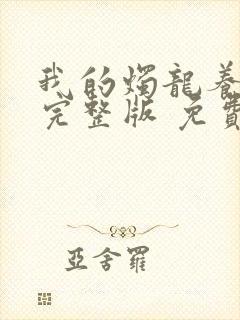 我的燭龍養
完整版 免費
亞舍羅